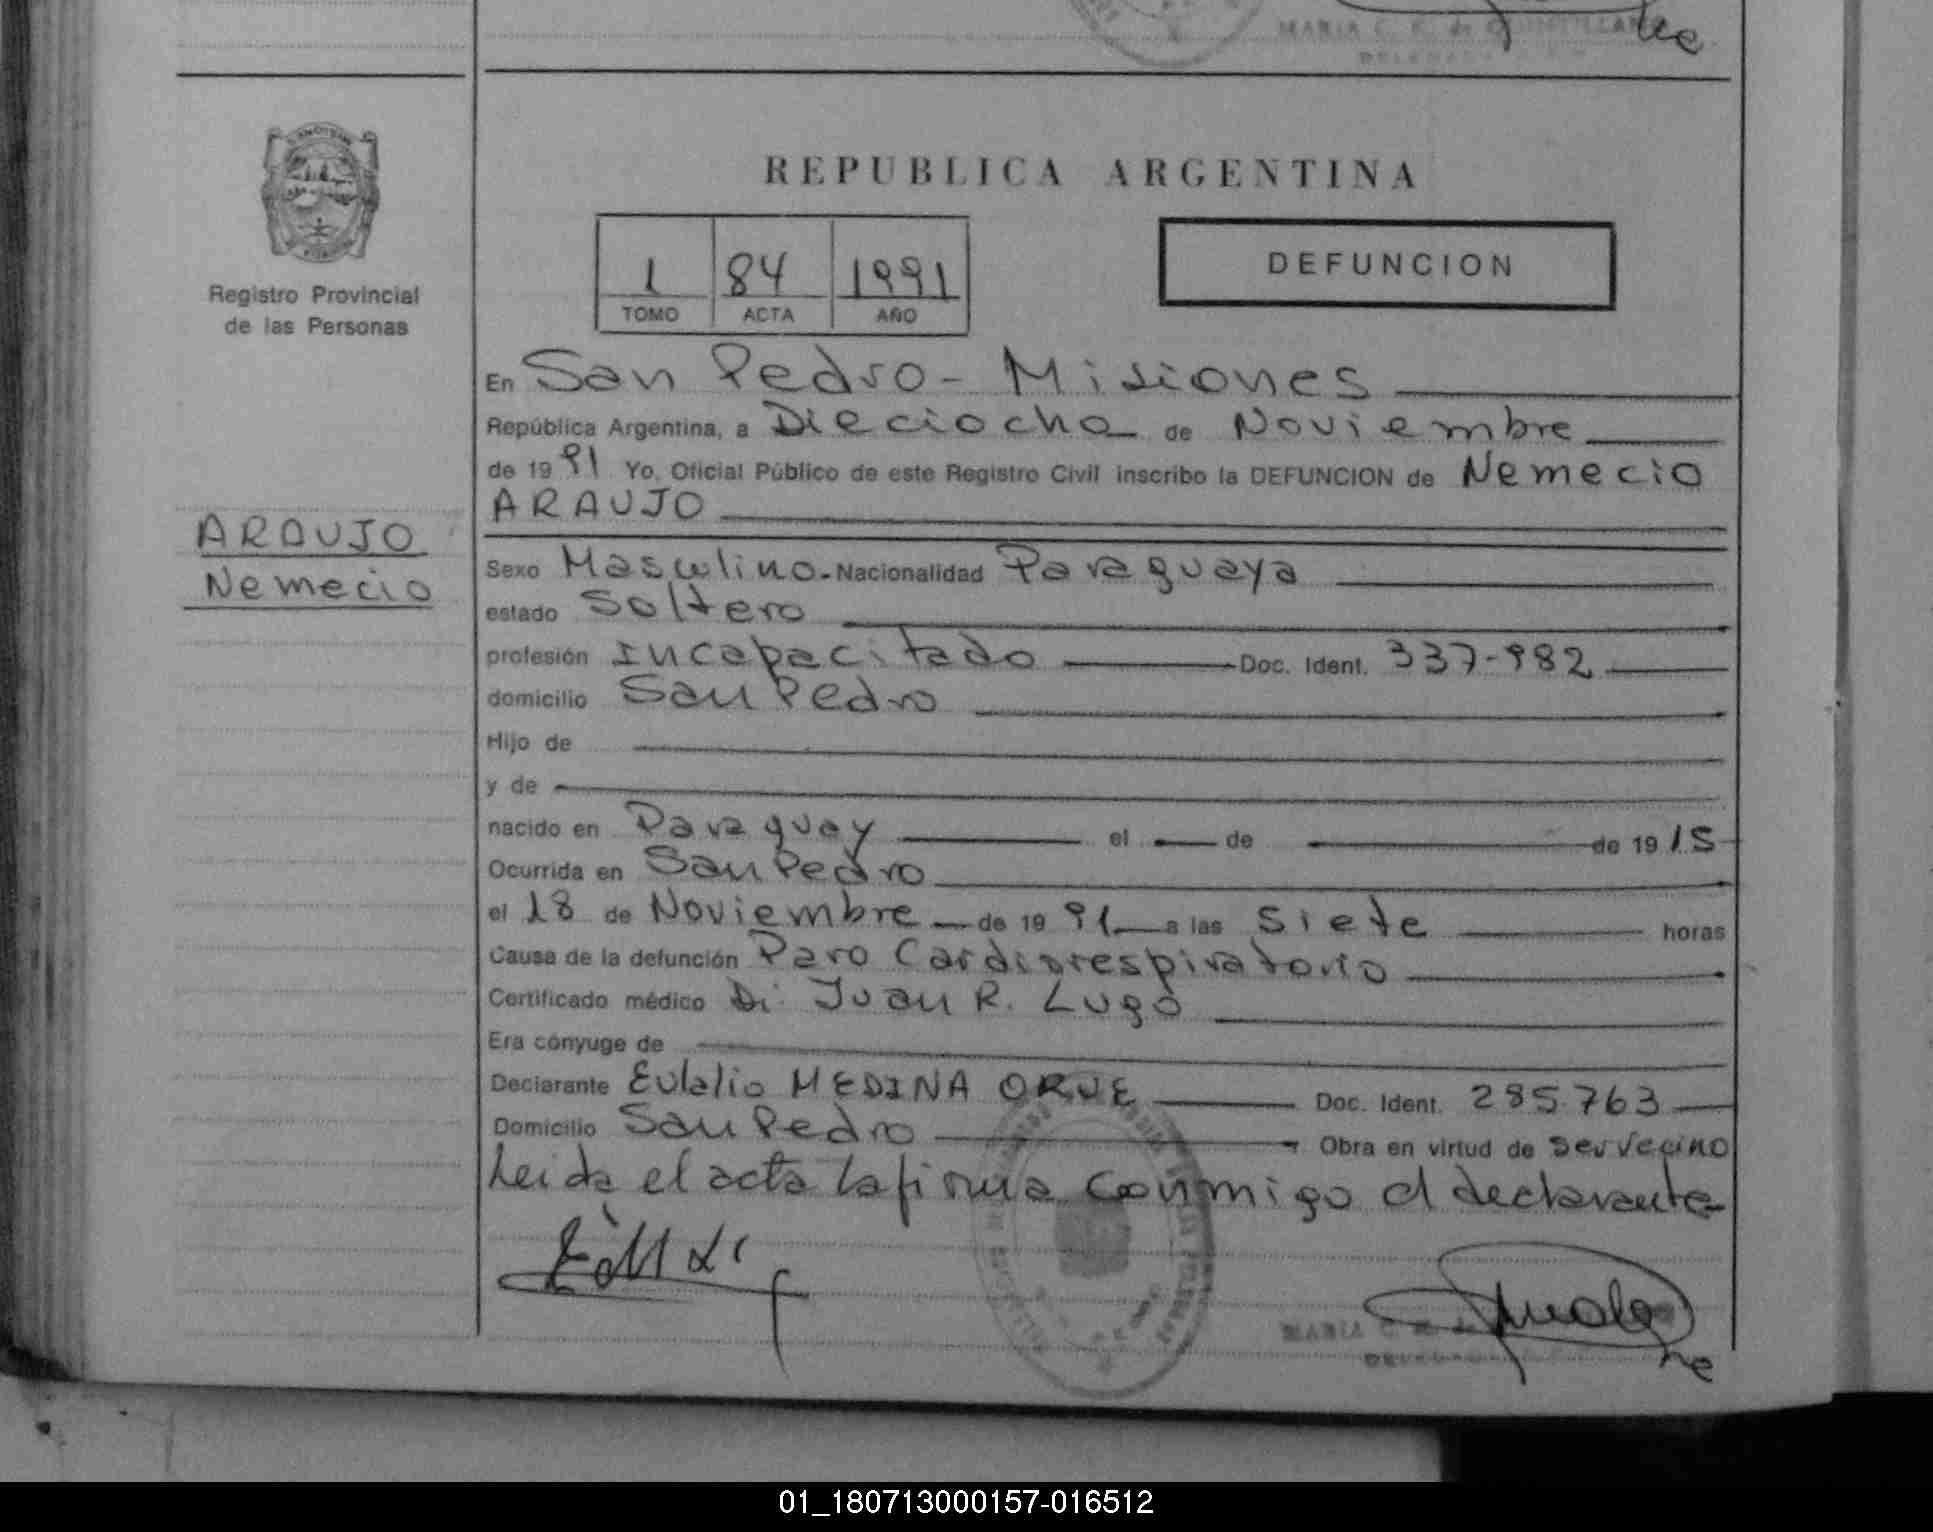 MARIA C. R. de QUINTILLAN
REPUBLICA ARGENTINA
1 84 1991
TOMO ACTA AÑO
DEFUNCION
Registro Provincial
de las Personas
ARAUJO
Nemecio
En San Pedro - Misiones
República Argentina, a Dieciocho de Noviembre
de 1991 Yo, Oficial Público de este Registro Civil inscribo la DEFUNCION de Nemecio
ARAUJO
Sexo Masculino.- Nacionalidad Paraguaya
estado Soltero
profesión Incapacitado Doc. Ident. 337-982
domicilio San Pedro
Hijo de
y de
nacido en Paraguay el de de 1915
Ocurrida en San Pedro
el 18 de Noviembre de 1991 a las Siete horas
Causa de la defunción Paro Cardiorespiratorio
Certificado médico Dr. Juan R. Lugo
Era cónyuge de
Declarante Eulalio MEDINA ORUE Doc. Ident. 285.763
Domicilio San Pedro Obra en virtud de ser vecino
Leida el acta la firma conmigo el declarante
MARIA C. R. de
01_180713000157-016512